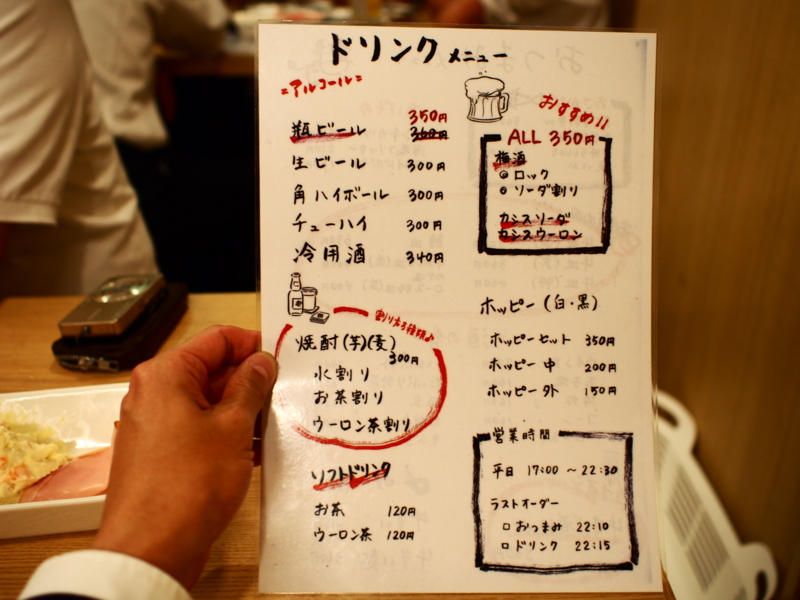 ドリンクメニュー
=アルコール=
350円
瓶ビール 360円
生ビール 300円
角ハイボール 300円
チューハイ 300円
冷用酒 340円
割り方3種類♪
焼酎(芋)(麦)
300円
水割り
お茶割り
ウーロン茶割り
ソフトドリンク
お茶 120円
ウーロン茶 120円
おすすめ!!
ALL 350円
梅酒
◎ロック
◎ソーダ割り
カシスソーダ
カシスウーロン
ホッピー(白・黒)
ホッピーセット 350円
ホッピー中 200円
ホッピー外 150円
営業時間
平日 17:00 〜 22:30
ラストオーダー
□おつまみ 22:10
□ドリンク 22:15